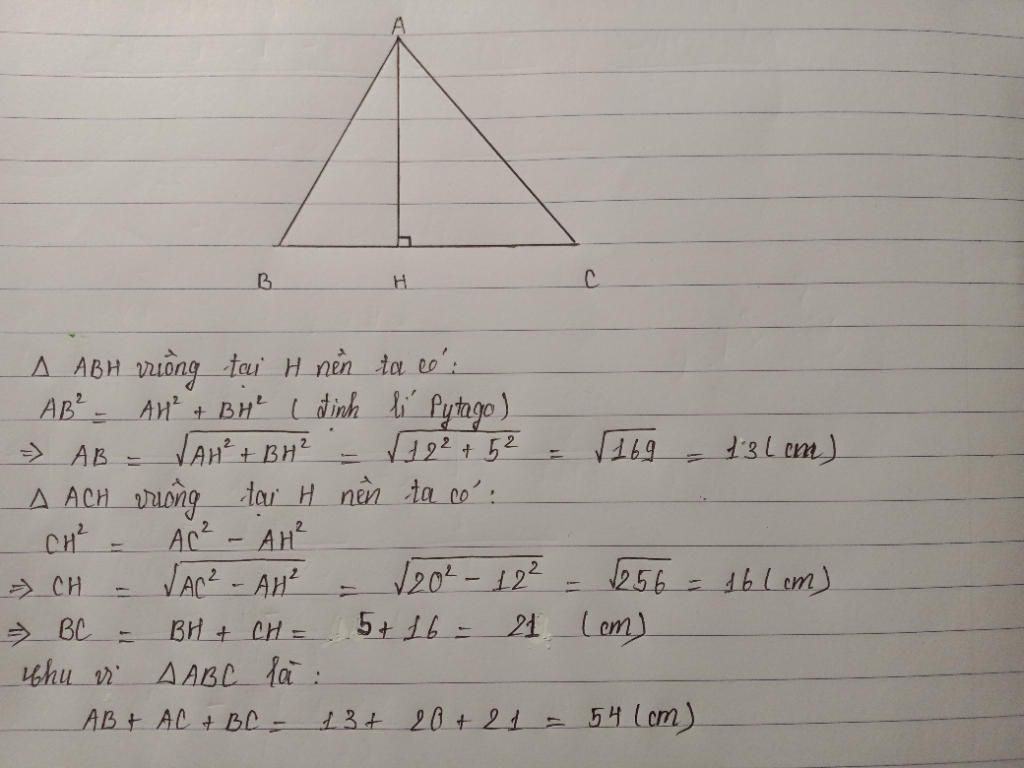 A
B H C
Δ ABH vuông tại H nên ta có:
AB² = AH² + BH² ( định lí Pytago)
⇒ AB = √(AH² + BH²) = √(12² + 5²) = √169 = 13 (cm)
Δ ACH vuông tại H nên ta có:
CH² = AC² - AH²
⇒ CH = √(AC² - AH²) = √(20² - 12²) = √256 = 16 (cm)
⇒ BC = BH + CH = 5 + 16 = 21 (cm)
Chu vi ΔABC là:
AB + AC + BC = 13 + 20 + 21 = 54 (cm)